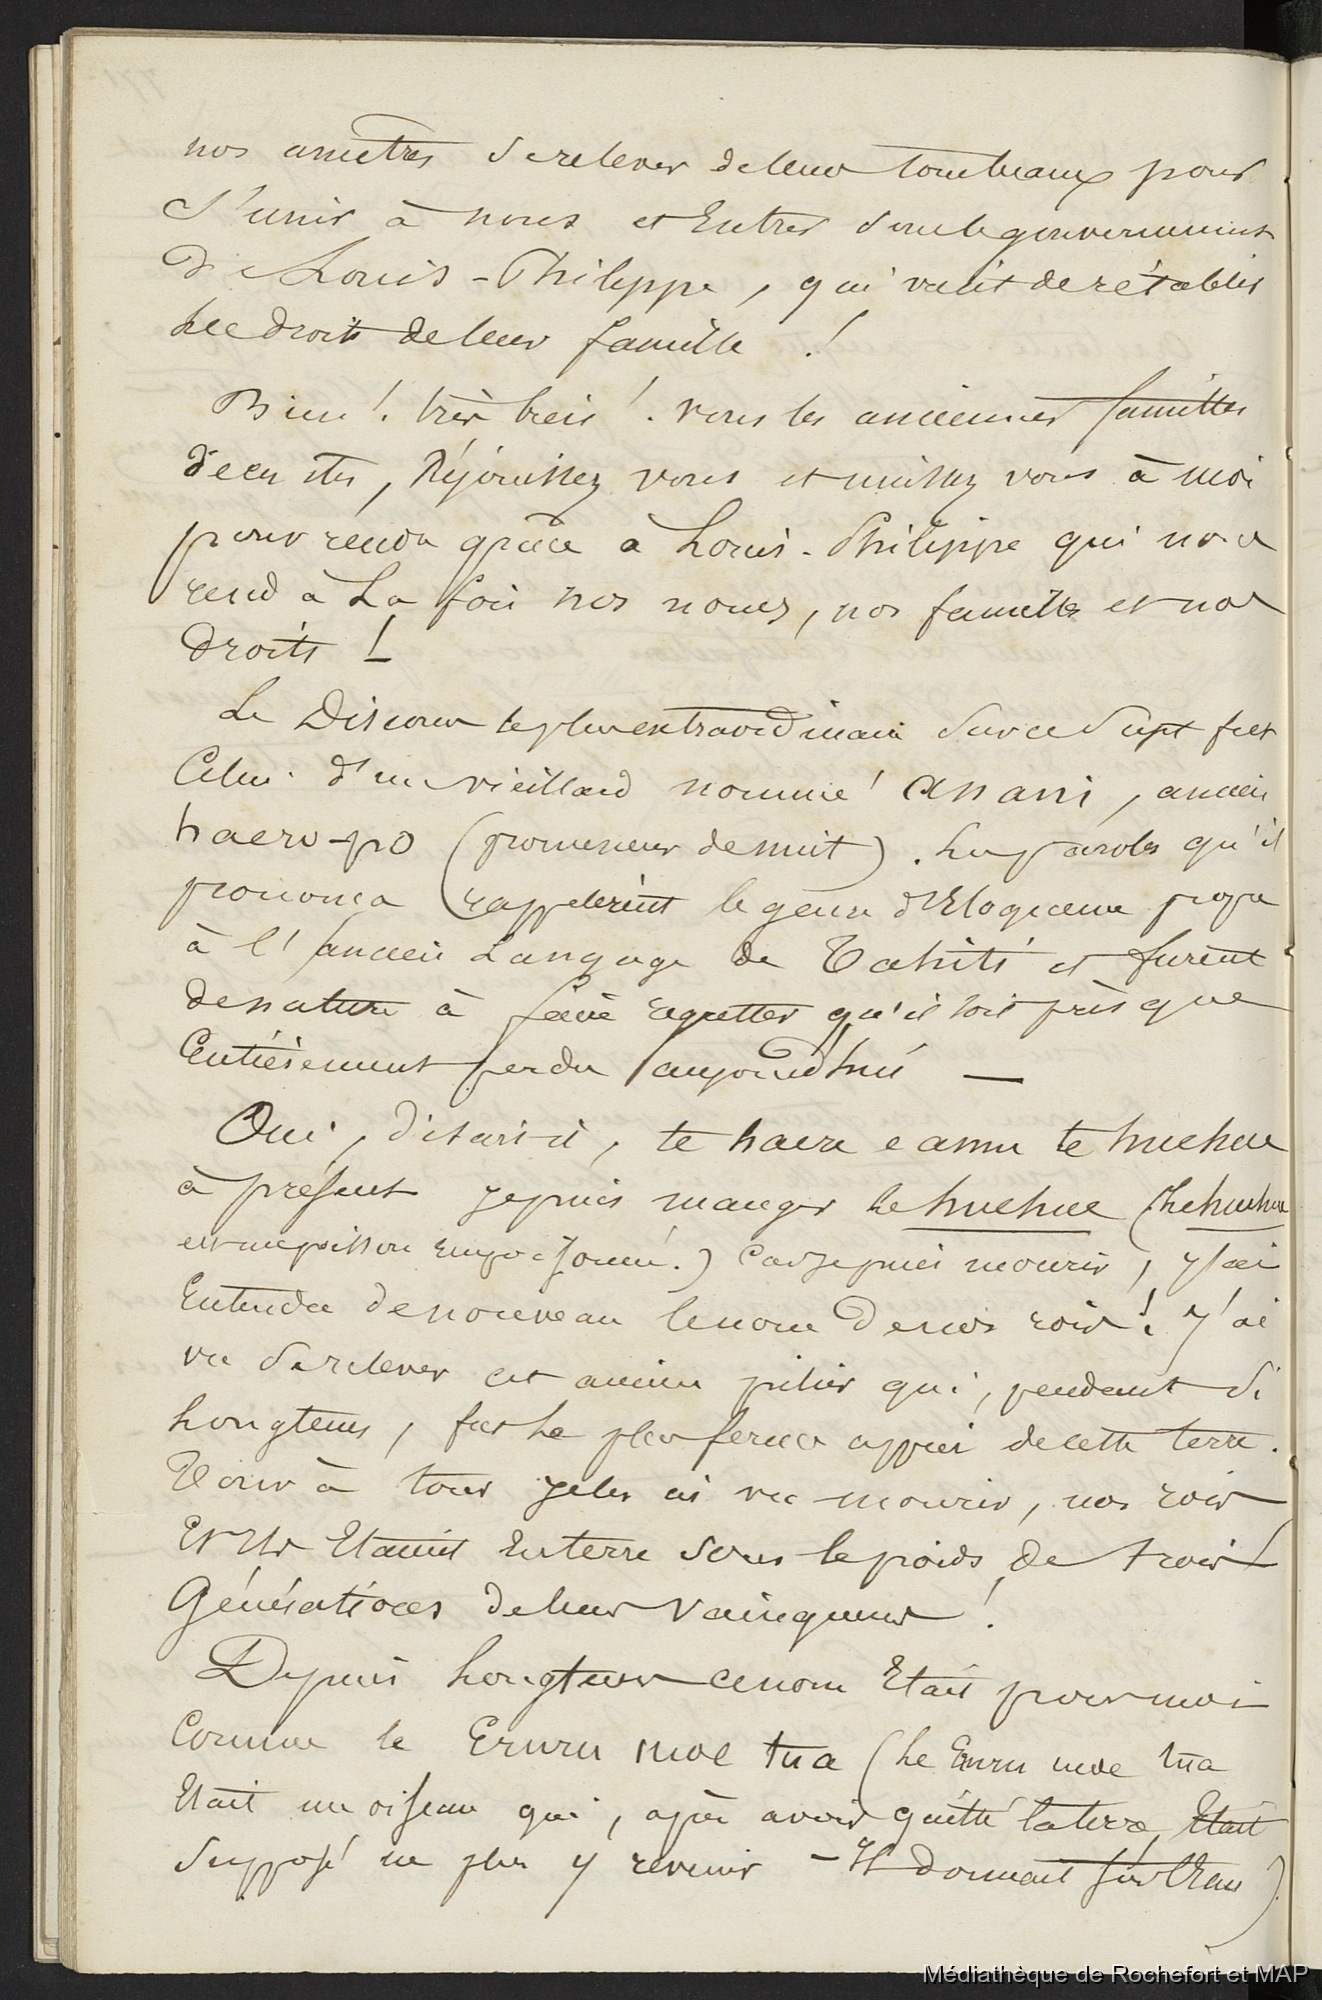 nos ancêtres se relever de leurs tombeaux pour
s'unir à nous et Entrer sous le gouvernement
de Louis-Philippe, qui vient de rétablir
les droits de leur famille !
Bien ! très bien ! vous les anciennes familles
déchues, Réjouissez vous et unissez vous à moi
pour rendre grâce à Louis-Philippe qui nous
rend à La fois nos noms, nos familles et nos
droits !
Le Discours le plus extraordinaire sur ce sujet fut
Celui d'un vieillard nommé anani, ancien
haere-po (promeneur de nuit). Les paroles qu'il
prononça rappelèrent le genre d'Eloquence propre
à l'ancien Langage de Tahiti et furent
de nature à faire regretter qu'il soit presque
Entièrement perdu aujourd'hui —
Oui, disait-il, te haere e amu te huehue
à présent je puis manger le huehue (le huehue
est un poisson empoisonné.) Car je puis mourir, j'ai
Entendu de nouveau le nom de nos rois ! J'ai
vu se relever cet ancien pilier qui, pendant si
Longtems, fut le plus ferme appui de cette terre.
Tour à tour je les ai vu mourir, nos rois
Et Ils Etaient En terre sous le poids de trois
Générations de leurs vainqueurs !
Depuis Longtems ce nom Etait pour moi
Comme le Eruru moe tua (Le Eruru moe tua
Etait un oiseau qui, après avoir quitté la terre, Etait
supposé ne plus y revenir — Il dormait sur l'Eau)
Médiathèque de Rochefort et MAP